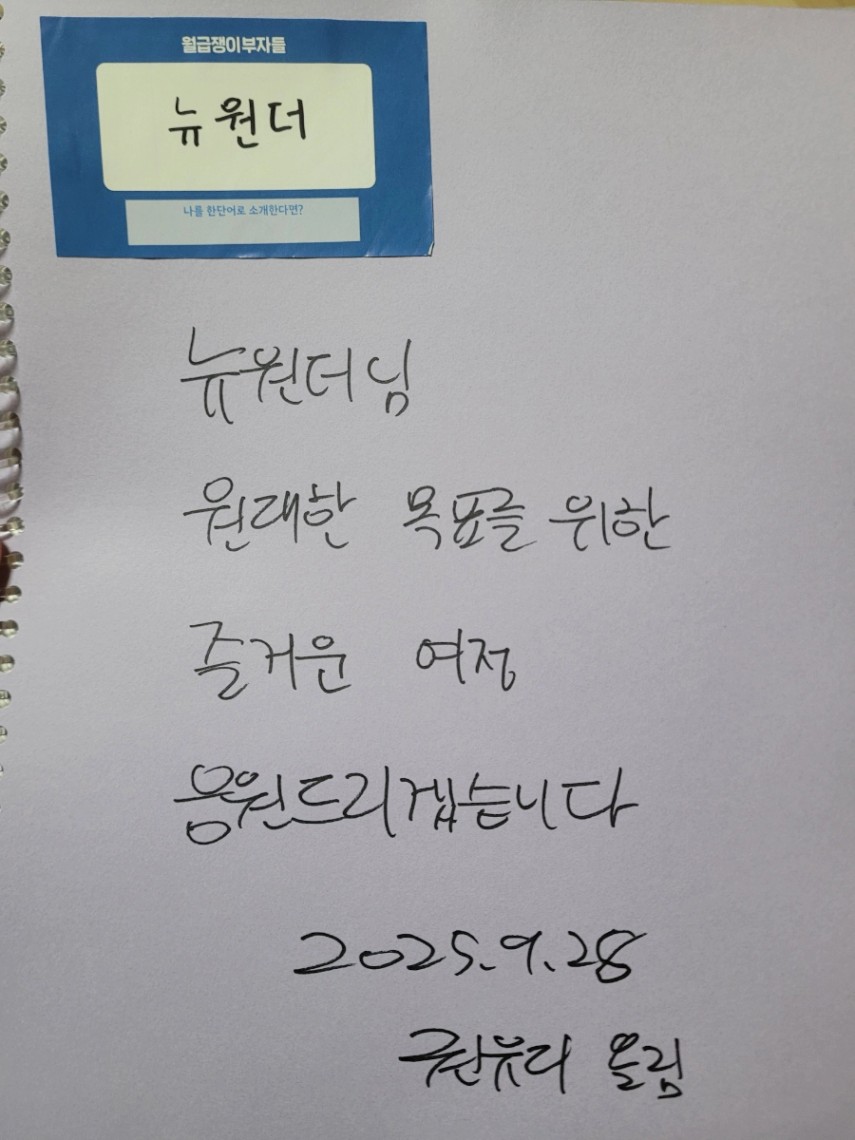 월급쟁이부자들
뉴원더
나를 한단어로 소개한다면?
뉴원더님
원대한 목표를 위한
즐거운 여정
응원드리겠습니다
2025.9.28
권유디 올림